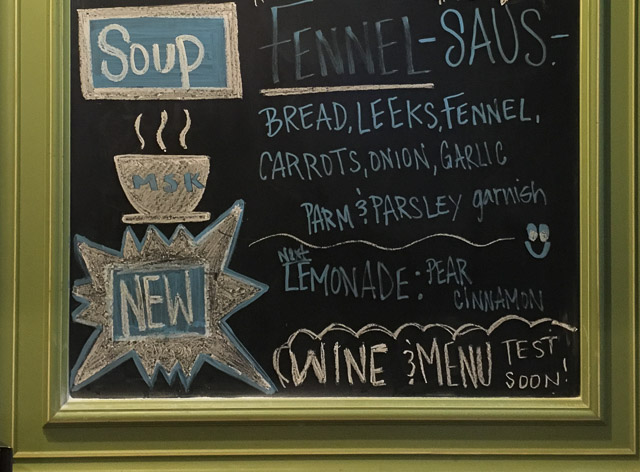 Soup
FENNEL-SAUS.-
BREAD, LEEKS, FENNEL,
CARROTS, ONION, GARLIC
PARM & PARSLEY garnish
MSK
Next
LEMONADE: PEAR
CINNAMON
NEW
WINE & MENU TEST
SOON!